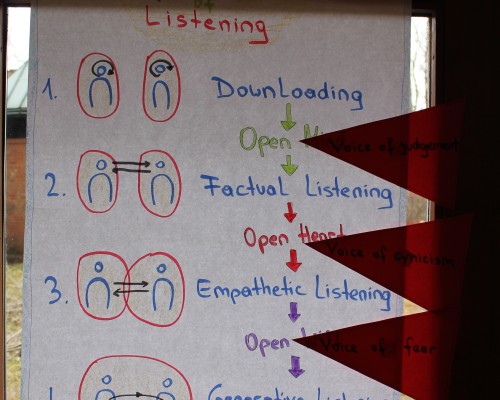 of
Listening
1. Downloading
Open
Voice of judgement
2. Factual Listening
Open Heart
Voice of cynicism
3. Empathetic Listening
Open
Voice of fear
Generative Listening